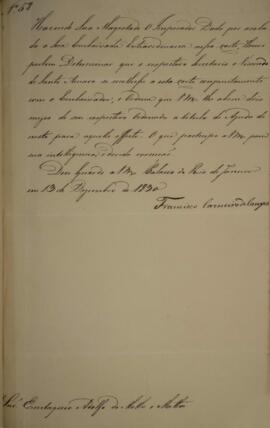 Nº 58
Havendo Sua Magestade O Imperador Dado por acaba
da a Sua Embaixada Extraordinaria nessa Corte, Houve
por bem Determinar que o respectivo Secretario o Visconde
de Santo Amaro se recolhesse a esta Corte conjuntamente
com o Embaixador, e Ordena que VMce lhe abone dois
mezes de seu respectivo Ordenado a titulo de Ajuda de
custo para aquelle effeito. O que participo a VMce para
sua intelligencia, e devida execução.
Deos Guarde a VMce Palacio do Rio de Janeiro
em 13 de Dezembro de 1830.
Francisco Carneiro de Campos
Snr. Eustaquio Adolfo de Mello e Mattos